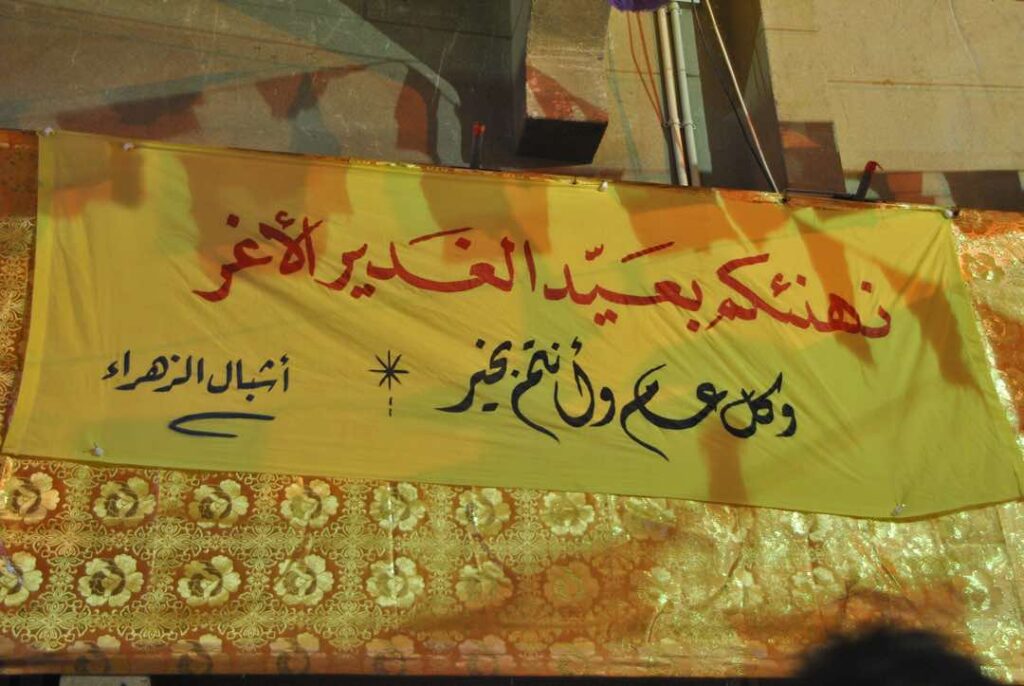 نهنئكم بعيد الغدير الأغر
وكل عام وأنتم بخير
أشبال الزهراء